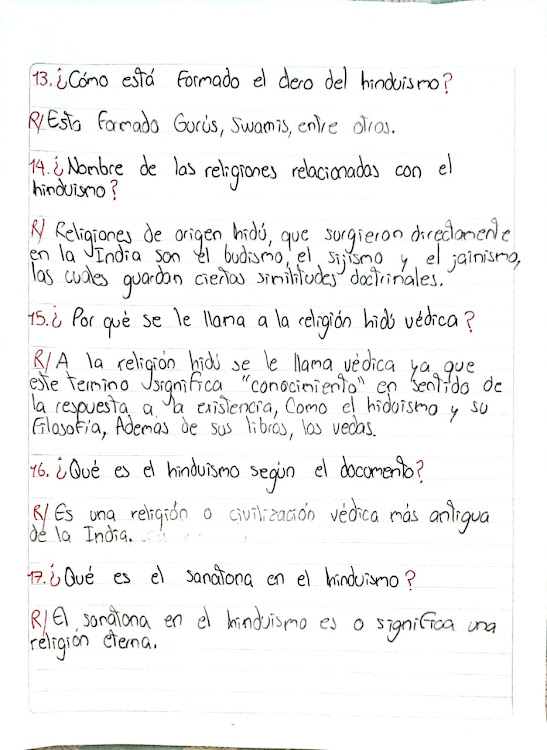 13. ¿Cómo está Formado el clero del hinduismo?
R/ Esta Formado Gurús, Swamis, entre otros.
14. ¿ Nombre de las religiones relacionadas con el
hinduismo?
R/ Religiones de origen hidú, que surgieron directamente
en la India son el budismo, el sijismo y el jainismo,
las cuales guardan ciertas similitudes doctrinales.
15. ¿ Por qué se le llama a la religión hidú védica?
R/ A la religión hidú se le llama védica ya que
este termino significa "conocimiento" en sentido de
la respuesta a la existencia, Como el hiduismo y su
Filosofía, Ademas de sus libros, los vedas.
16. ¿Qué es el hinduismo según el documento?
R/ Es una religión o civilización védica más antigua
de la India.
17. ¿Qué es el sanatona en el hinduismo?
R/ El sanatona en el hinduismo es o significa una
religión eterna.